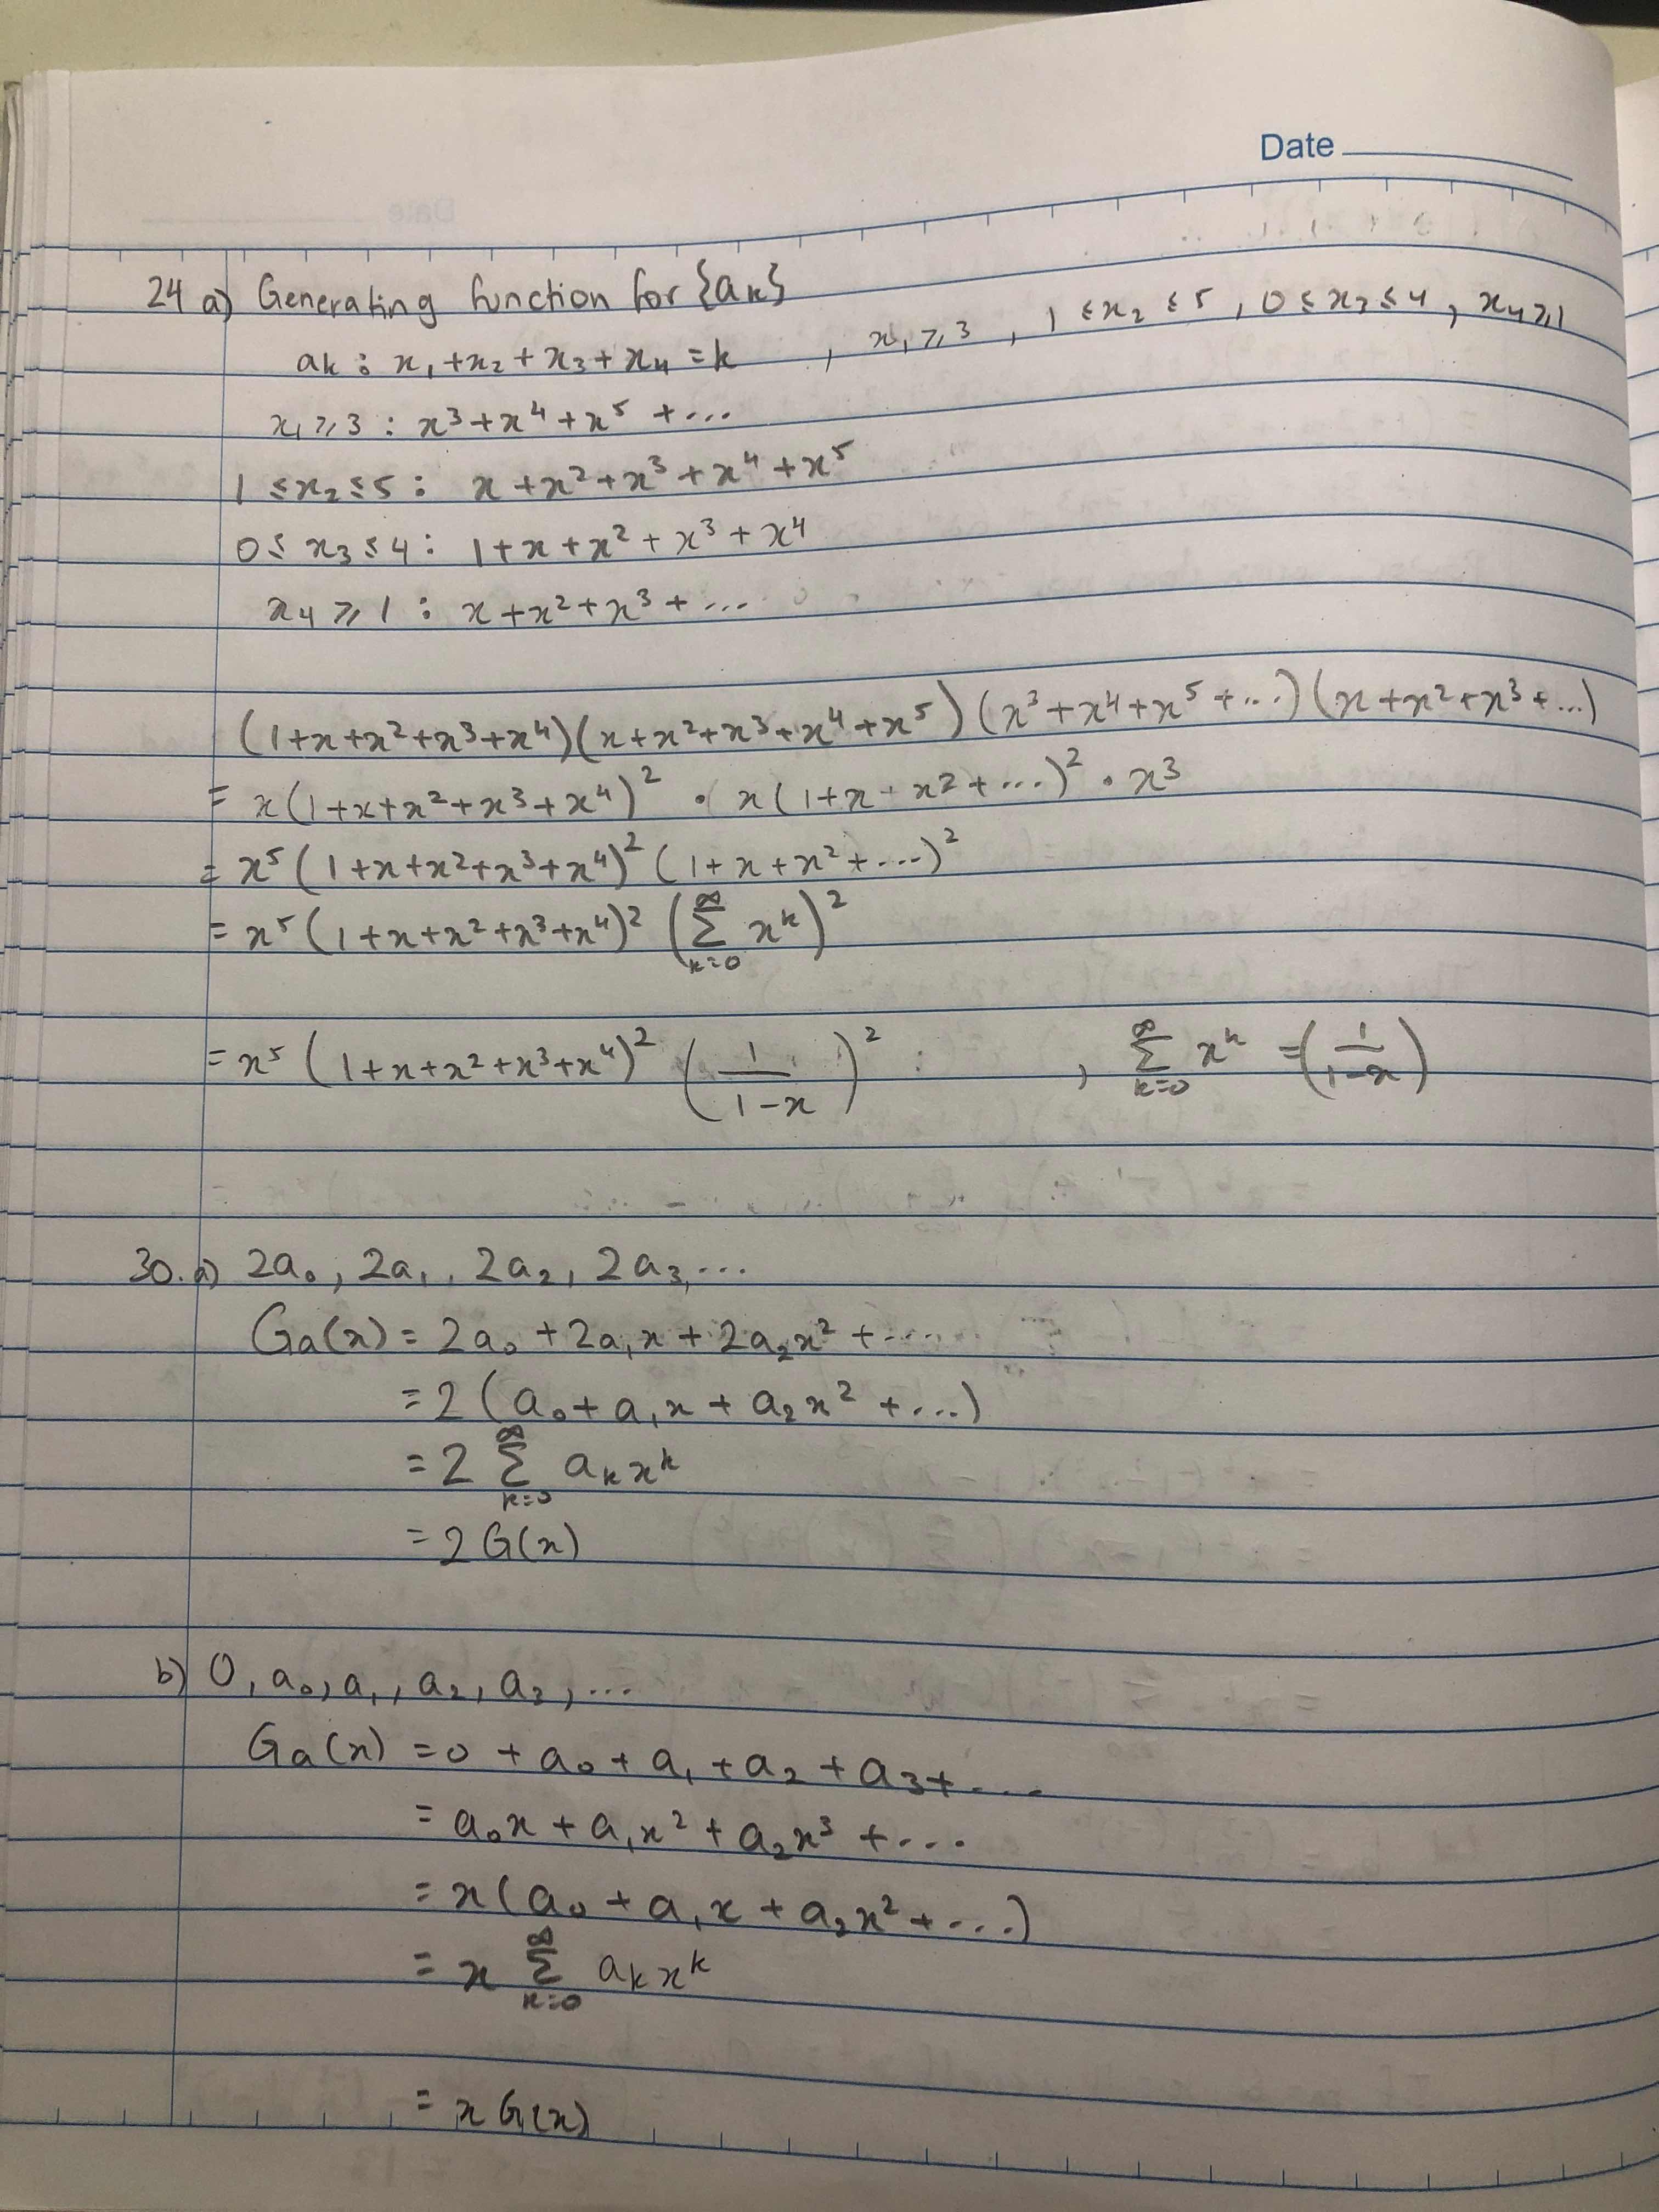 Date
24 a) Generating function for {aₖ}
aₖ : x₁ + x₂ + x₃ + x₄ = k , x₁ ⩾ 3 , 1 ≤ x₂ ≤ 5 , 0 ≤ x₃ ≤ 4 , x₄ ⩾ 1
x₁ ⩾ 3 : x³ + x⁴ + x⁵ + ...
1 ≤ x₂ ≤ 5 : x + x² + x³ + x⁴ + x⁵
0 ≤ x₃ ≤ 4 : 1 + x + x² + x³ + x⁴
x₄ ⩾ 1 : x + x² + x³ + ...
(1+x+x²+x³+x⁴)(x+x²+x³+x⁴+x⁵)(x³+x⁴+x⁵+...)(x+x²+x³+...)
= x(1+x+x²+x³+x⁴)² · x(1+x+x²+...)² · x³
= x⁵(1+x+x²+x³+x⁴)²(1+x+x²+...)²
= x⁵(1+x+x²+x³+x⁴)² (∑_{k=0}^{∞} xᵏ)²
= x⁵(1+x+x²+x³+x⁴)² (1/(1-x))² , ∑_{k=0}^{∞} xᵏ = (1/(1-x))
30. a) 2a₀, 2a₁, 2a₂, 2a₃, ...
Ga(x) = 2a₀ + 2a₁x + 2a₂x² + ....
= 2(a₀ + a₁x + a₂x² + ...)
= 2 ∑_{k=0}^{∞} aₖxᵏ
= 2G(x)
b) 0, a₀, a₁, a₂, a₃, ...
Ga(x) = 0 + a₀ + a₁ + a₂ + a₃ + ....
= a₀x + a₁x² + a₂x³ + ...
= x(a₀ + a₁x + a₂x² + ...)
= x ∑_{k=0}^{∞} aₖxᵏ
= x G(x)